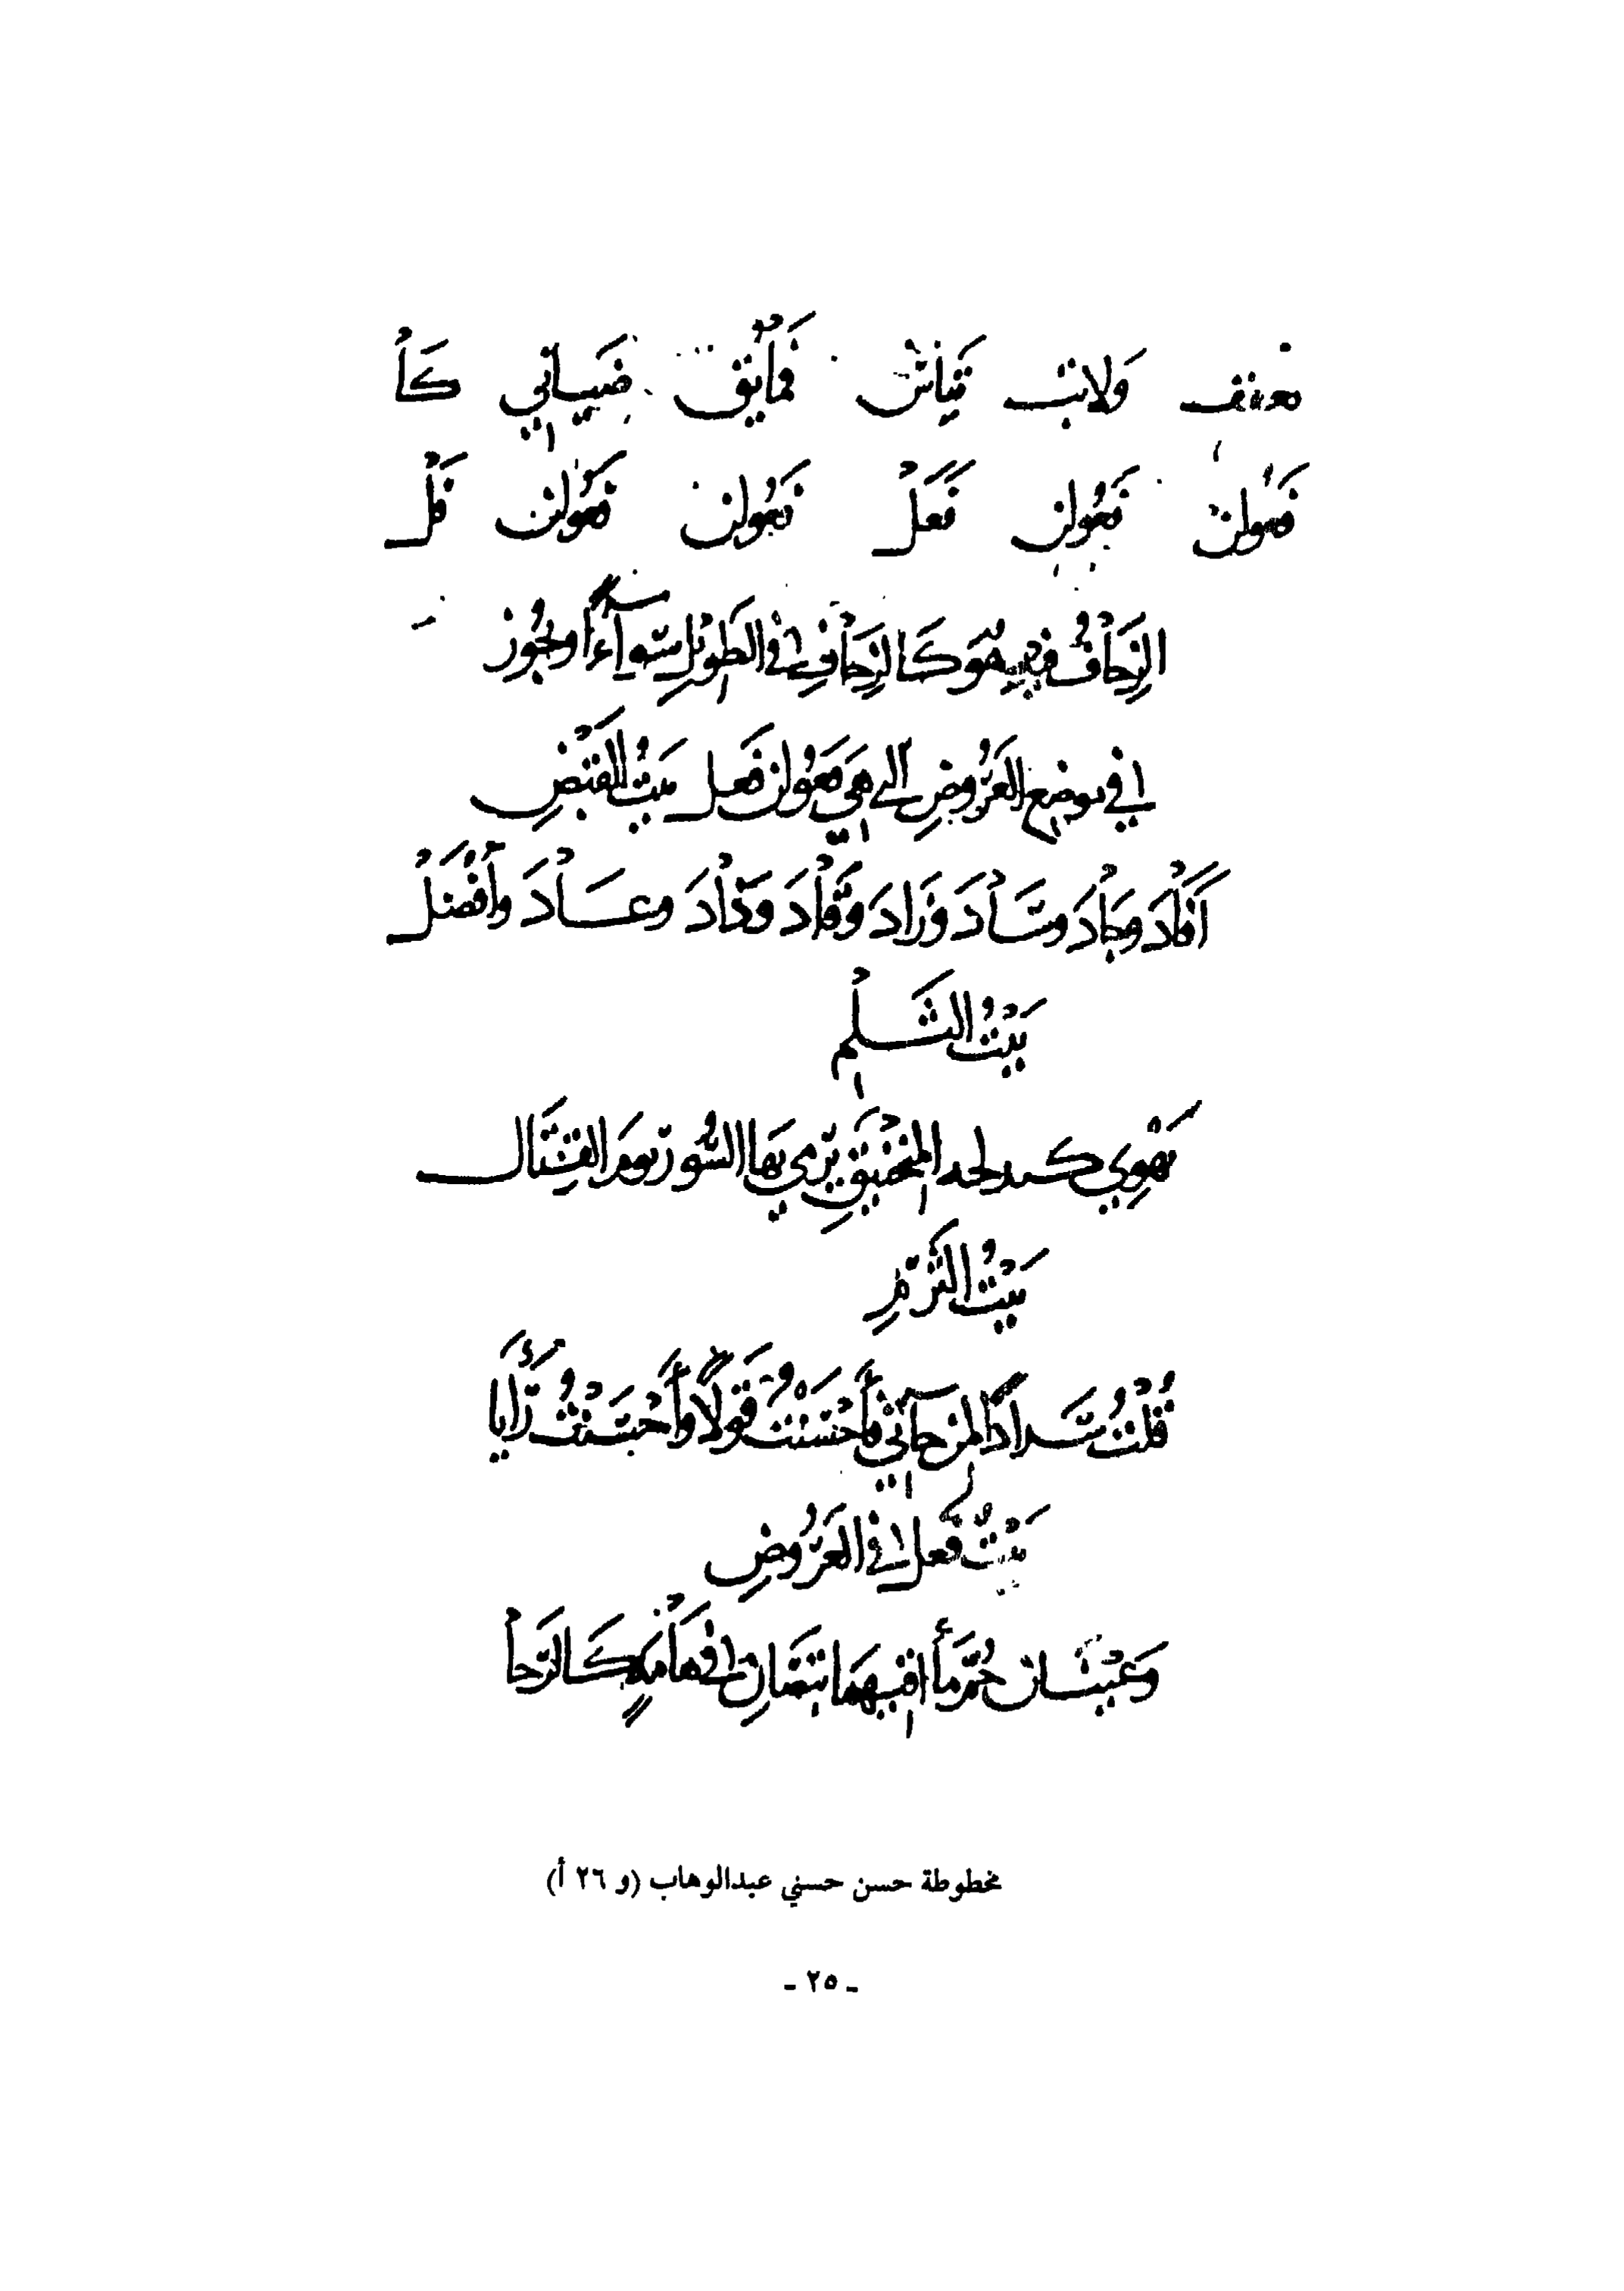 ولاتب تياس فمايق ضيياتي كَأ
فعولن فعولن فَعَلْ فعولن فعولن فَلْ
الزِحَافُ فيه هُوَ كَالزِحَافِ في الطَوِيلِ سَوآءًا ويجُوز
في موضع العَرُوضِ التي هي فَعُولن فَعَل بَيْتُ القَبْضِ
أَفَادَ وجَادَ وسَادَ وزَادَ وقَادَ وذَادَ وعَادَ وأَفْضَلْ
بَيْتُ الثَلْمِ
تَهْوِي المنجنيقِ يَرْمي بَها السُّورَ يومَ القِتَالْ
بَيْتُ الثَرْمِ
قُلْتُ سَدادًا لمن جآني فأَحْسَنْتُ قَوْلًا وأَحْسَنْتُ رَأْيا
بَيْتُ فَعَل في العَرُوضِ
وَعَيْنَانِ حُمْرٌ مَأَاقيهمَا تَبِصَّانِ في هَامَةٍ كَالرَحَا
مخطوطة حسن حسني عبدالوهاب (و ٢٦ أ)
- ٢٥ -